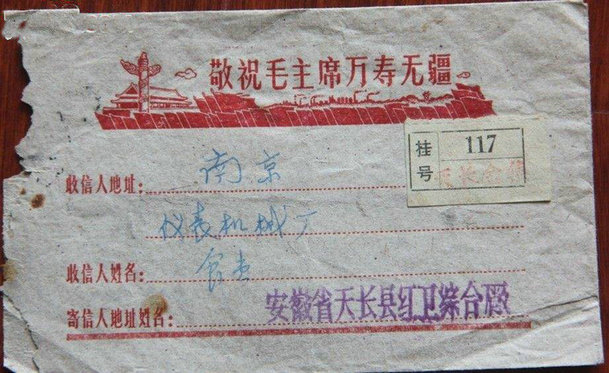 敬祝毛主席万寿无疆
挂号
117
天长金集
收信人地址：南京
仪表机械厂
收信人姓名：食堂
寄信人地址姓名：安徽省天长县红卫综合厂